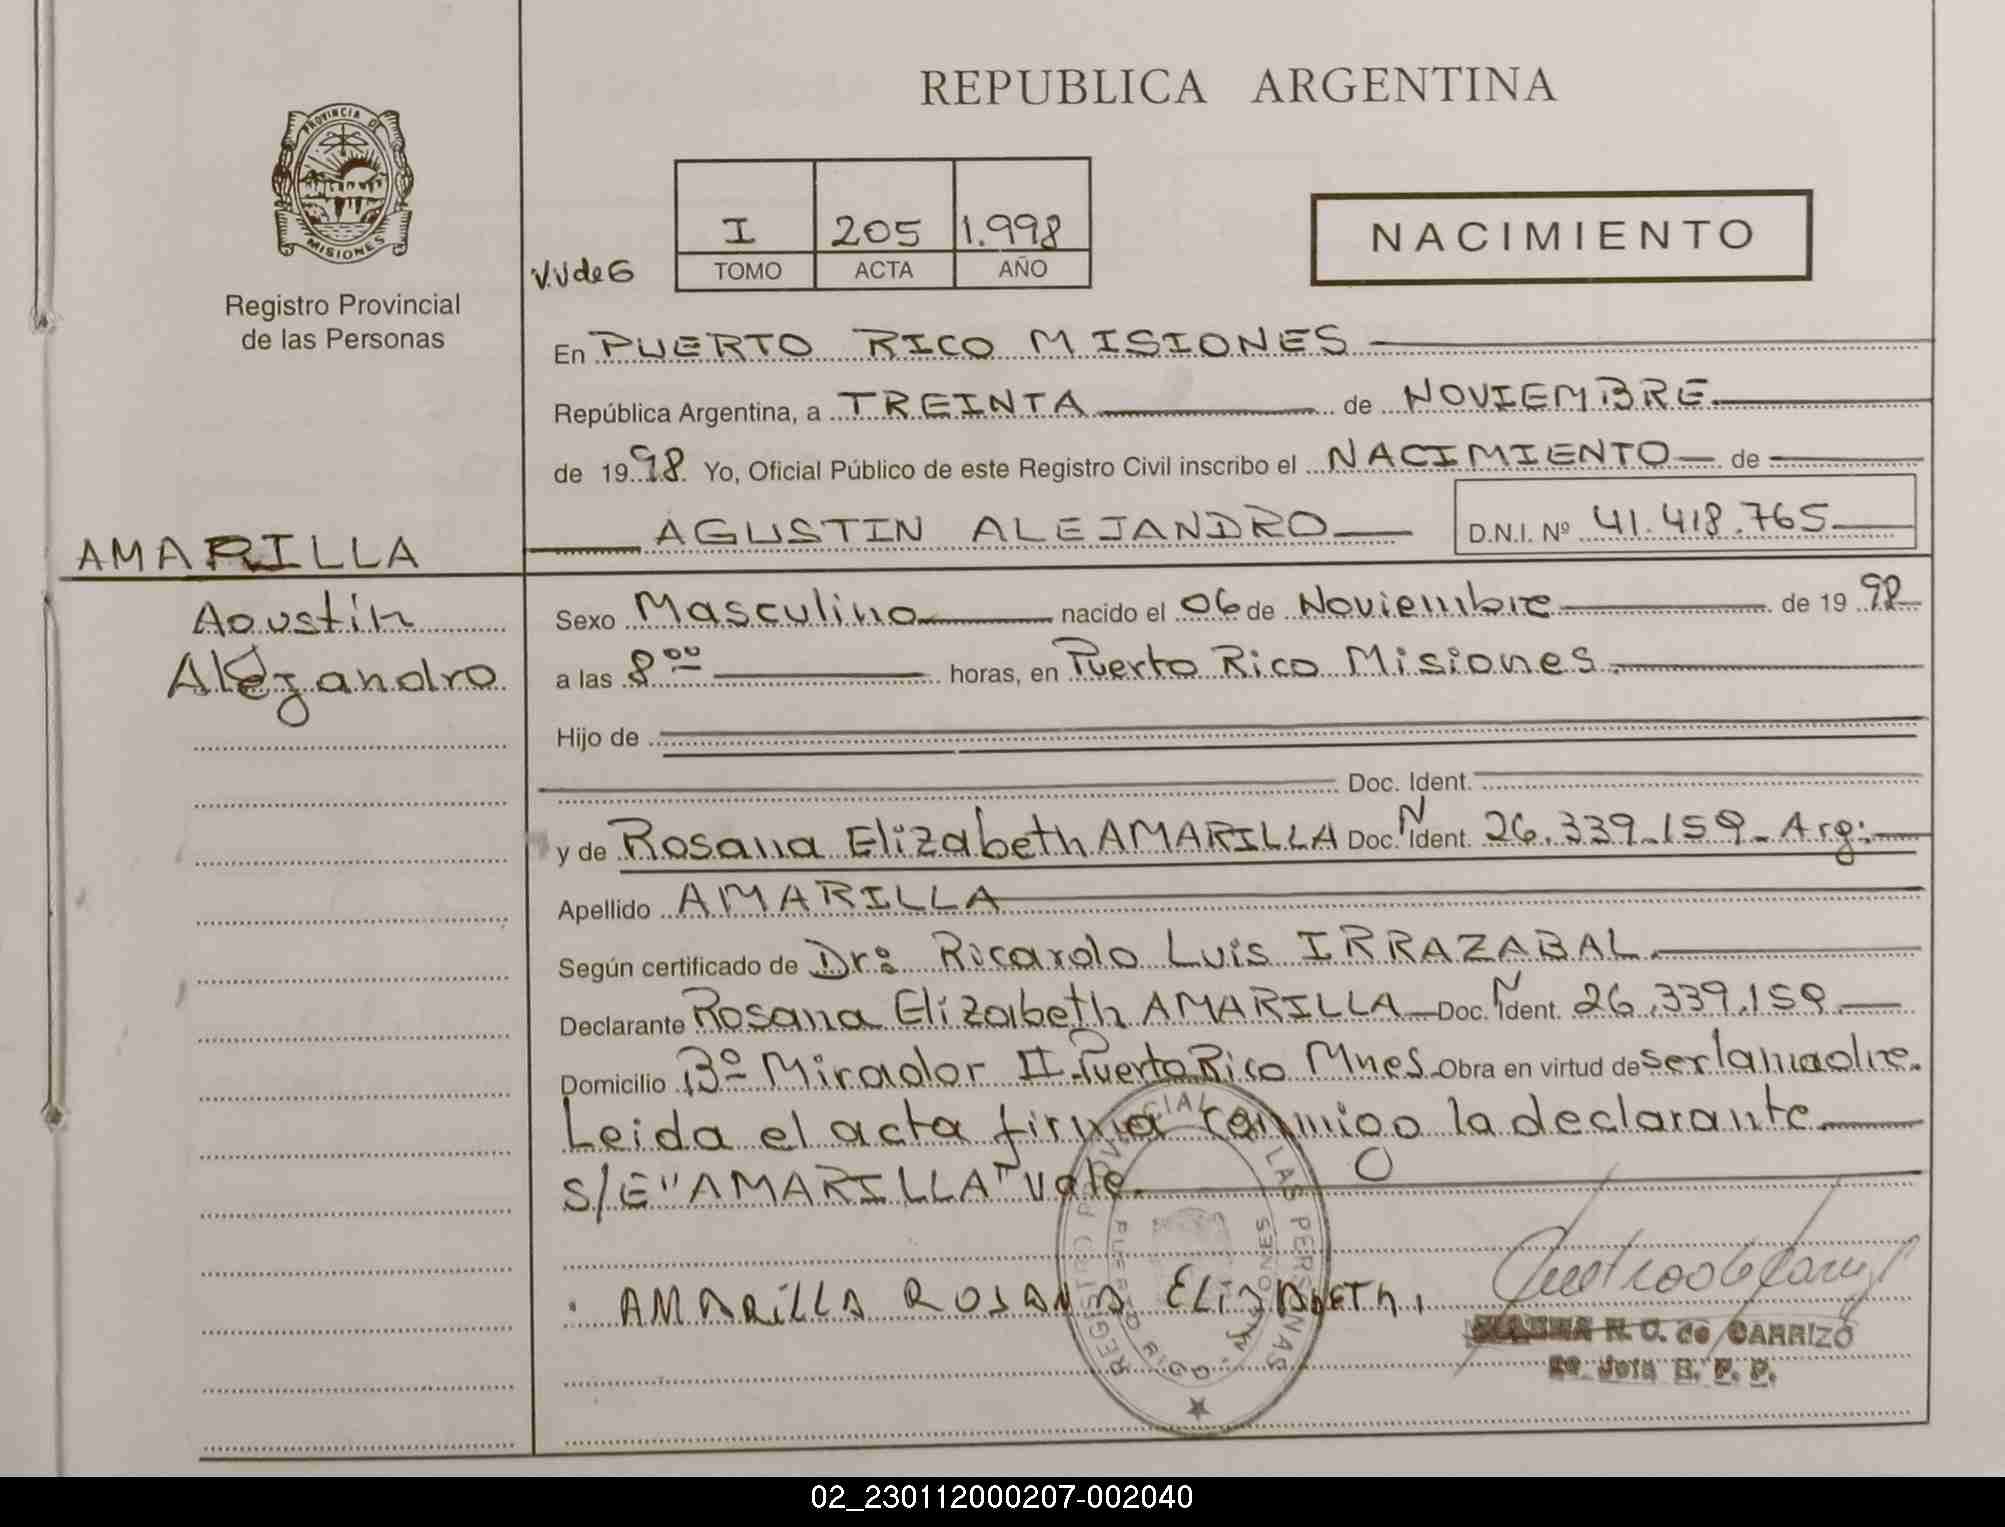 REPUBLICA ARGENTINA
PROVINCIA DE
MISIONES
Registro Provincial
de las Personas
I 205 1.998
V.V de G TOMO ACTA AÑO
NACIMIENTO
En PUERTO RICO MISIONES
República Argentina, a TREINTA de NOVIEMBRE
de 1998 Yo, Oficial Público de este Registro Civil inscribo el NACIMIENTO de
AGUSTIN ALEJANDRO D.N.I. Nº 41.418.765
AMARILLA
Agustín
Alejandro
Sexo Masculino nacido el 06 de Noviembre de 1998
a las 8 ºº horas, en Puerto Rico Misiones.
Hijo de
Doc. Ident.
y de Rosana Elizabeth AMARILLA Doc. N Ident. 26.339.159- Arg:
Apellido AMARILLA
Según certificado de Dr: Ricardo Luis IRRAZABAL.
Declarante Rosana Elizabeth AMARILLA Doc. N Ident. 26.339.159
Domicilio Bº Mirador II-Puerto Rico Mnes. Obra en virtud de ser la madre.
Leida el acta firma conmigo la declarante.
S/E "AMARILLA" Vale.
AMARILLA ROSANA ELIZABETH
REGISTRO PROVINCIAL LAS PERSONAS
PUERTO RICO
R. C. de CARRIZO
R. P. P.
02_230112000207-002040